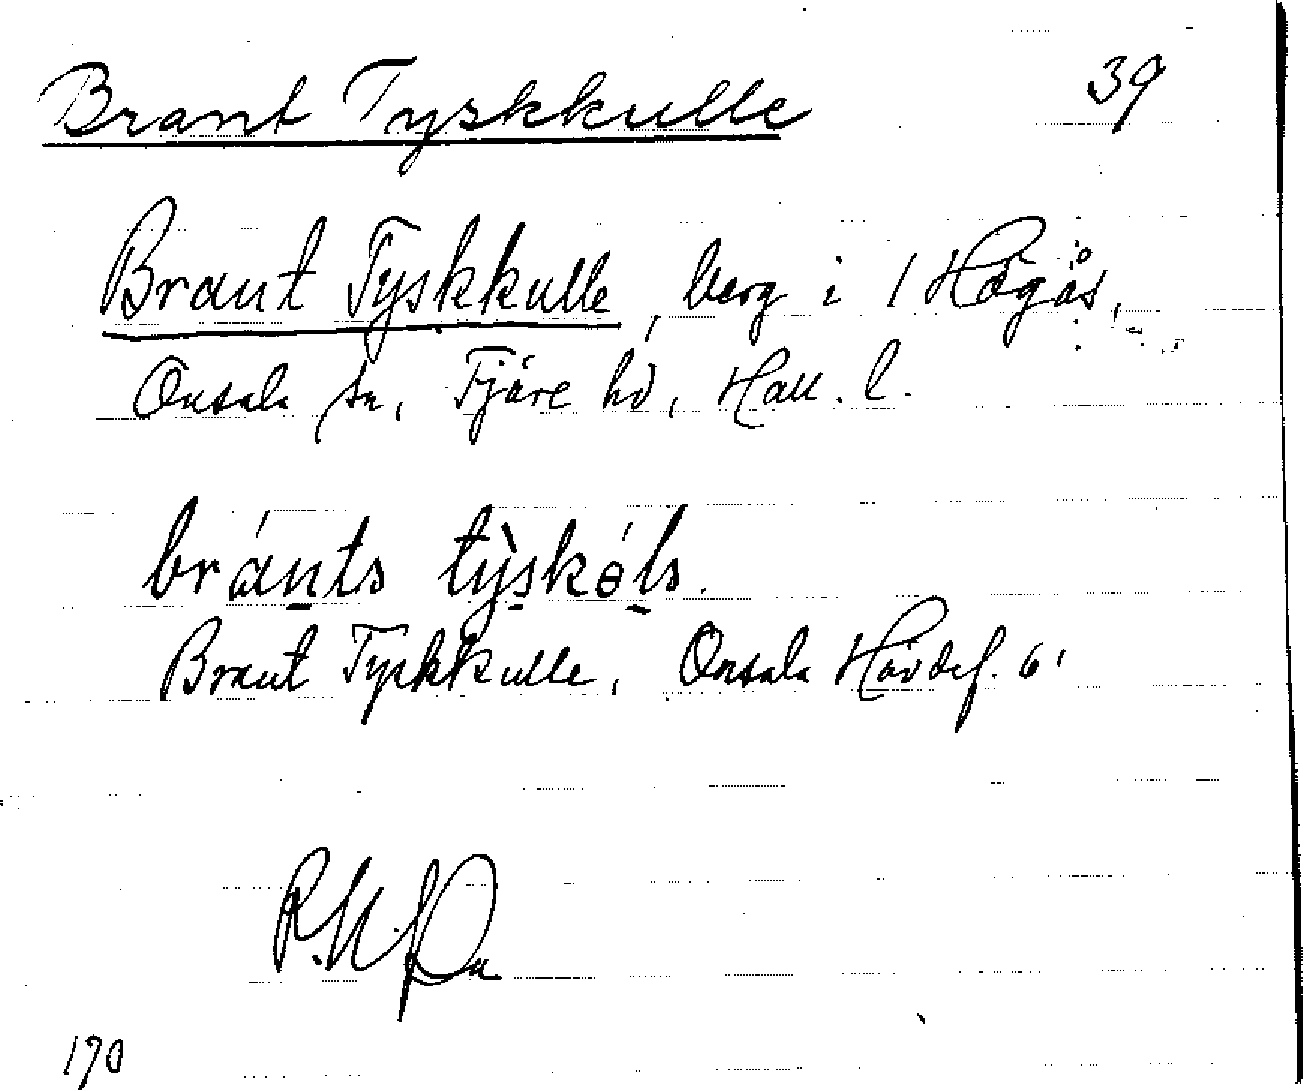 Brant Tyskkulle 39
Brant Tyskkulle, berg i 1 Högås,
Onsala sn, Fjäre hd, Hall. l.
bránts tỳskóls.
Brant Tyskkulle, Onsala Hävdef. 61
170